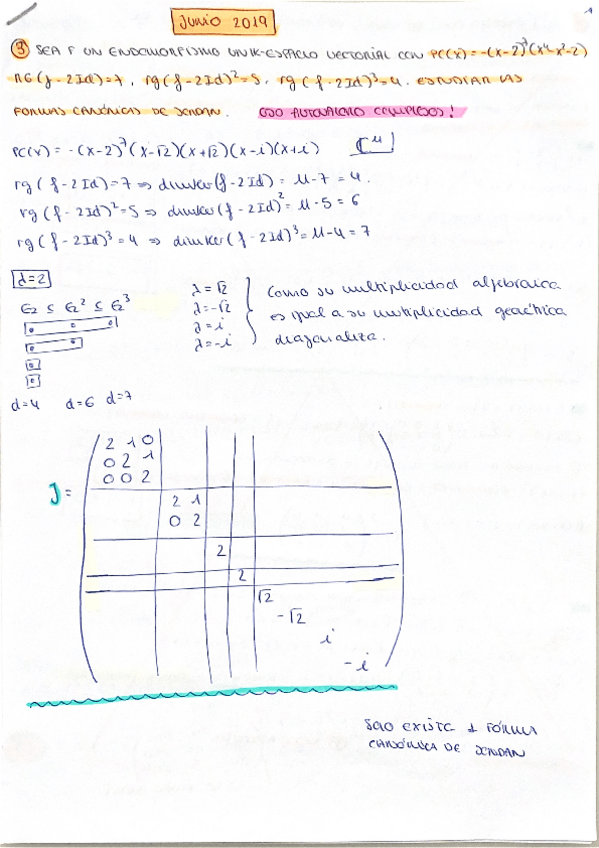 1
Junio 2019
3 SEA F UN ENDOMORFISMO UN K-ESPACIO VECTORIAL CON PC(X) = -(X-2)⁷(X⁴-X²-2)
RG(f-2Id)=7, rg(f-2Id)²=5, rg(f-2Id)³=4. ESTUDIAR LAS
FORMAS CANÓNICAS DE JORDAN. OJO AUTOVALORES COMPLEJOS!
PC(X) = -(x-2)⁷(x-√2)(x+√2)(x-i)(x+i) ℂ¹¹
rg(f-2Id)=7 ⇒ dimker(f-2Id) = 11-7 = 4.
rg(f-2Id)²=5 ⇒ dimker(f-2Id)² = 11-5 = 6
rg(f-2Id)³=4 ⇒ dimker(f-2Id)³ = 11-4 = 7
λ=2
E₂ ⊆ E₂² ⊆ E₂³
λ=√2
λ=-√2
λ=i
λ=-i
Como su multiplicidad algebraica
es igual a su multiplicidad geométrica
diagonaliza.
d=4 d=6 d=7
J =
2 1 0
0 2 1
0 0 2
2 1
0 2
2
2
√2
-√2
i
-i
SOLO EXISTE 1 FÓRMULA
CANÓNICA DE JORDAN